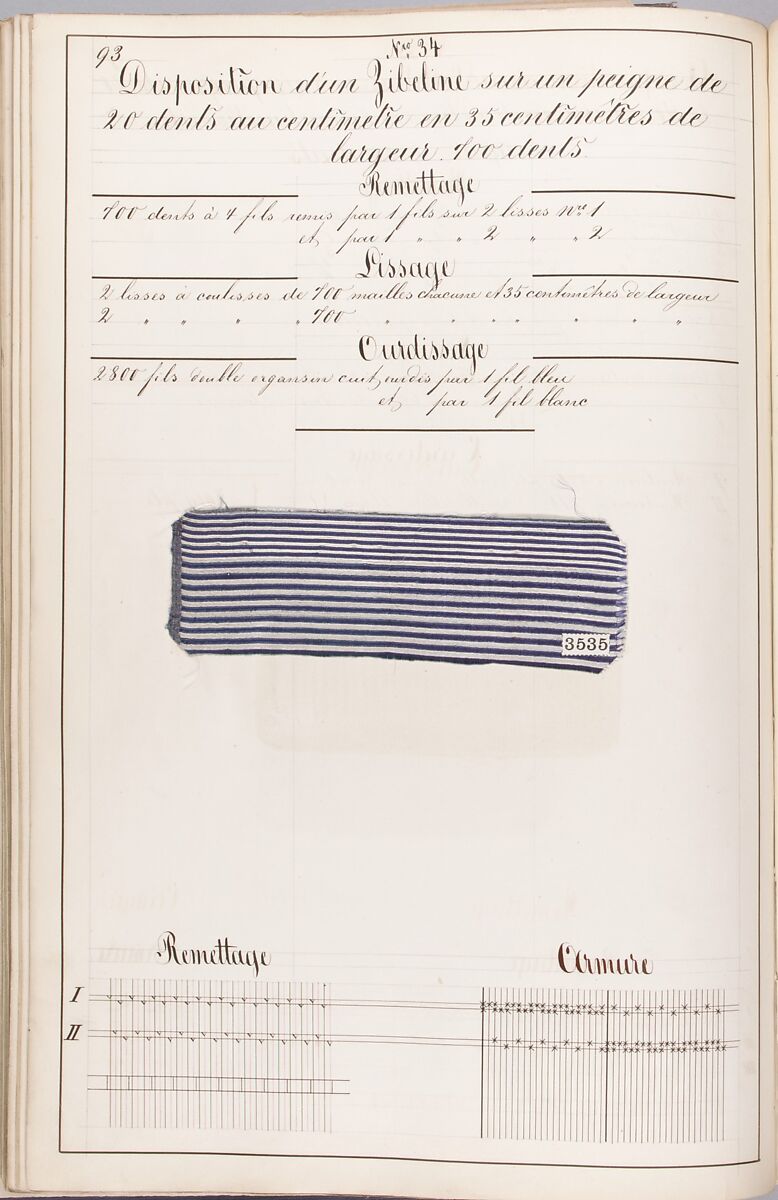 93
Nro. 34
Disposition d'un Zibeline sur un peigne de
20 dents au centimetre en 35 centimétres de
largeur. 700 dents.
Remettage
700 dents à 4 fils remis par 1 fils sur 2 lisses nro. 1
et par 1 " " 2 " " 2
Lissage
2 lisses à coulisses de 700 mailles chacune et 35 centimétres de largeur
2 " " " " 700 " " " " " " "
Ourdissage
2800 fils double organsin cuit, ourdis par 1 fil bleu
et par 1 fil blanc
3535
Remettage
Armure
I
II